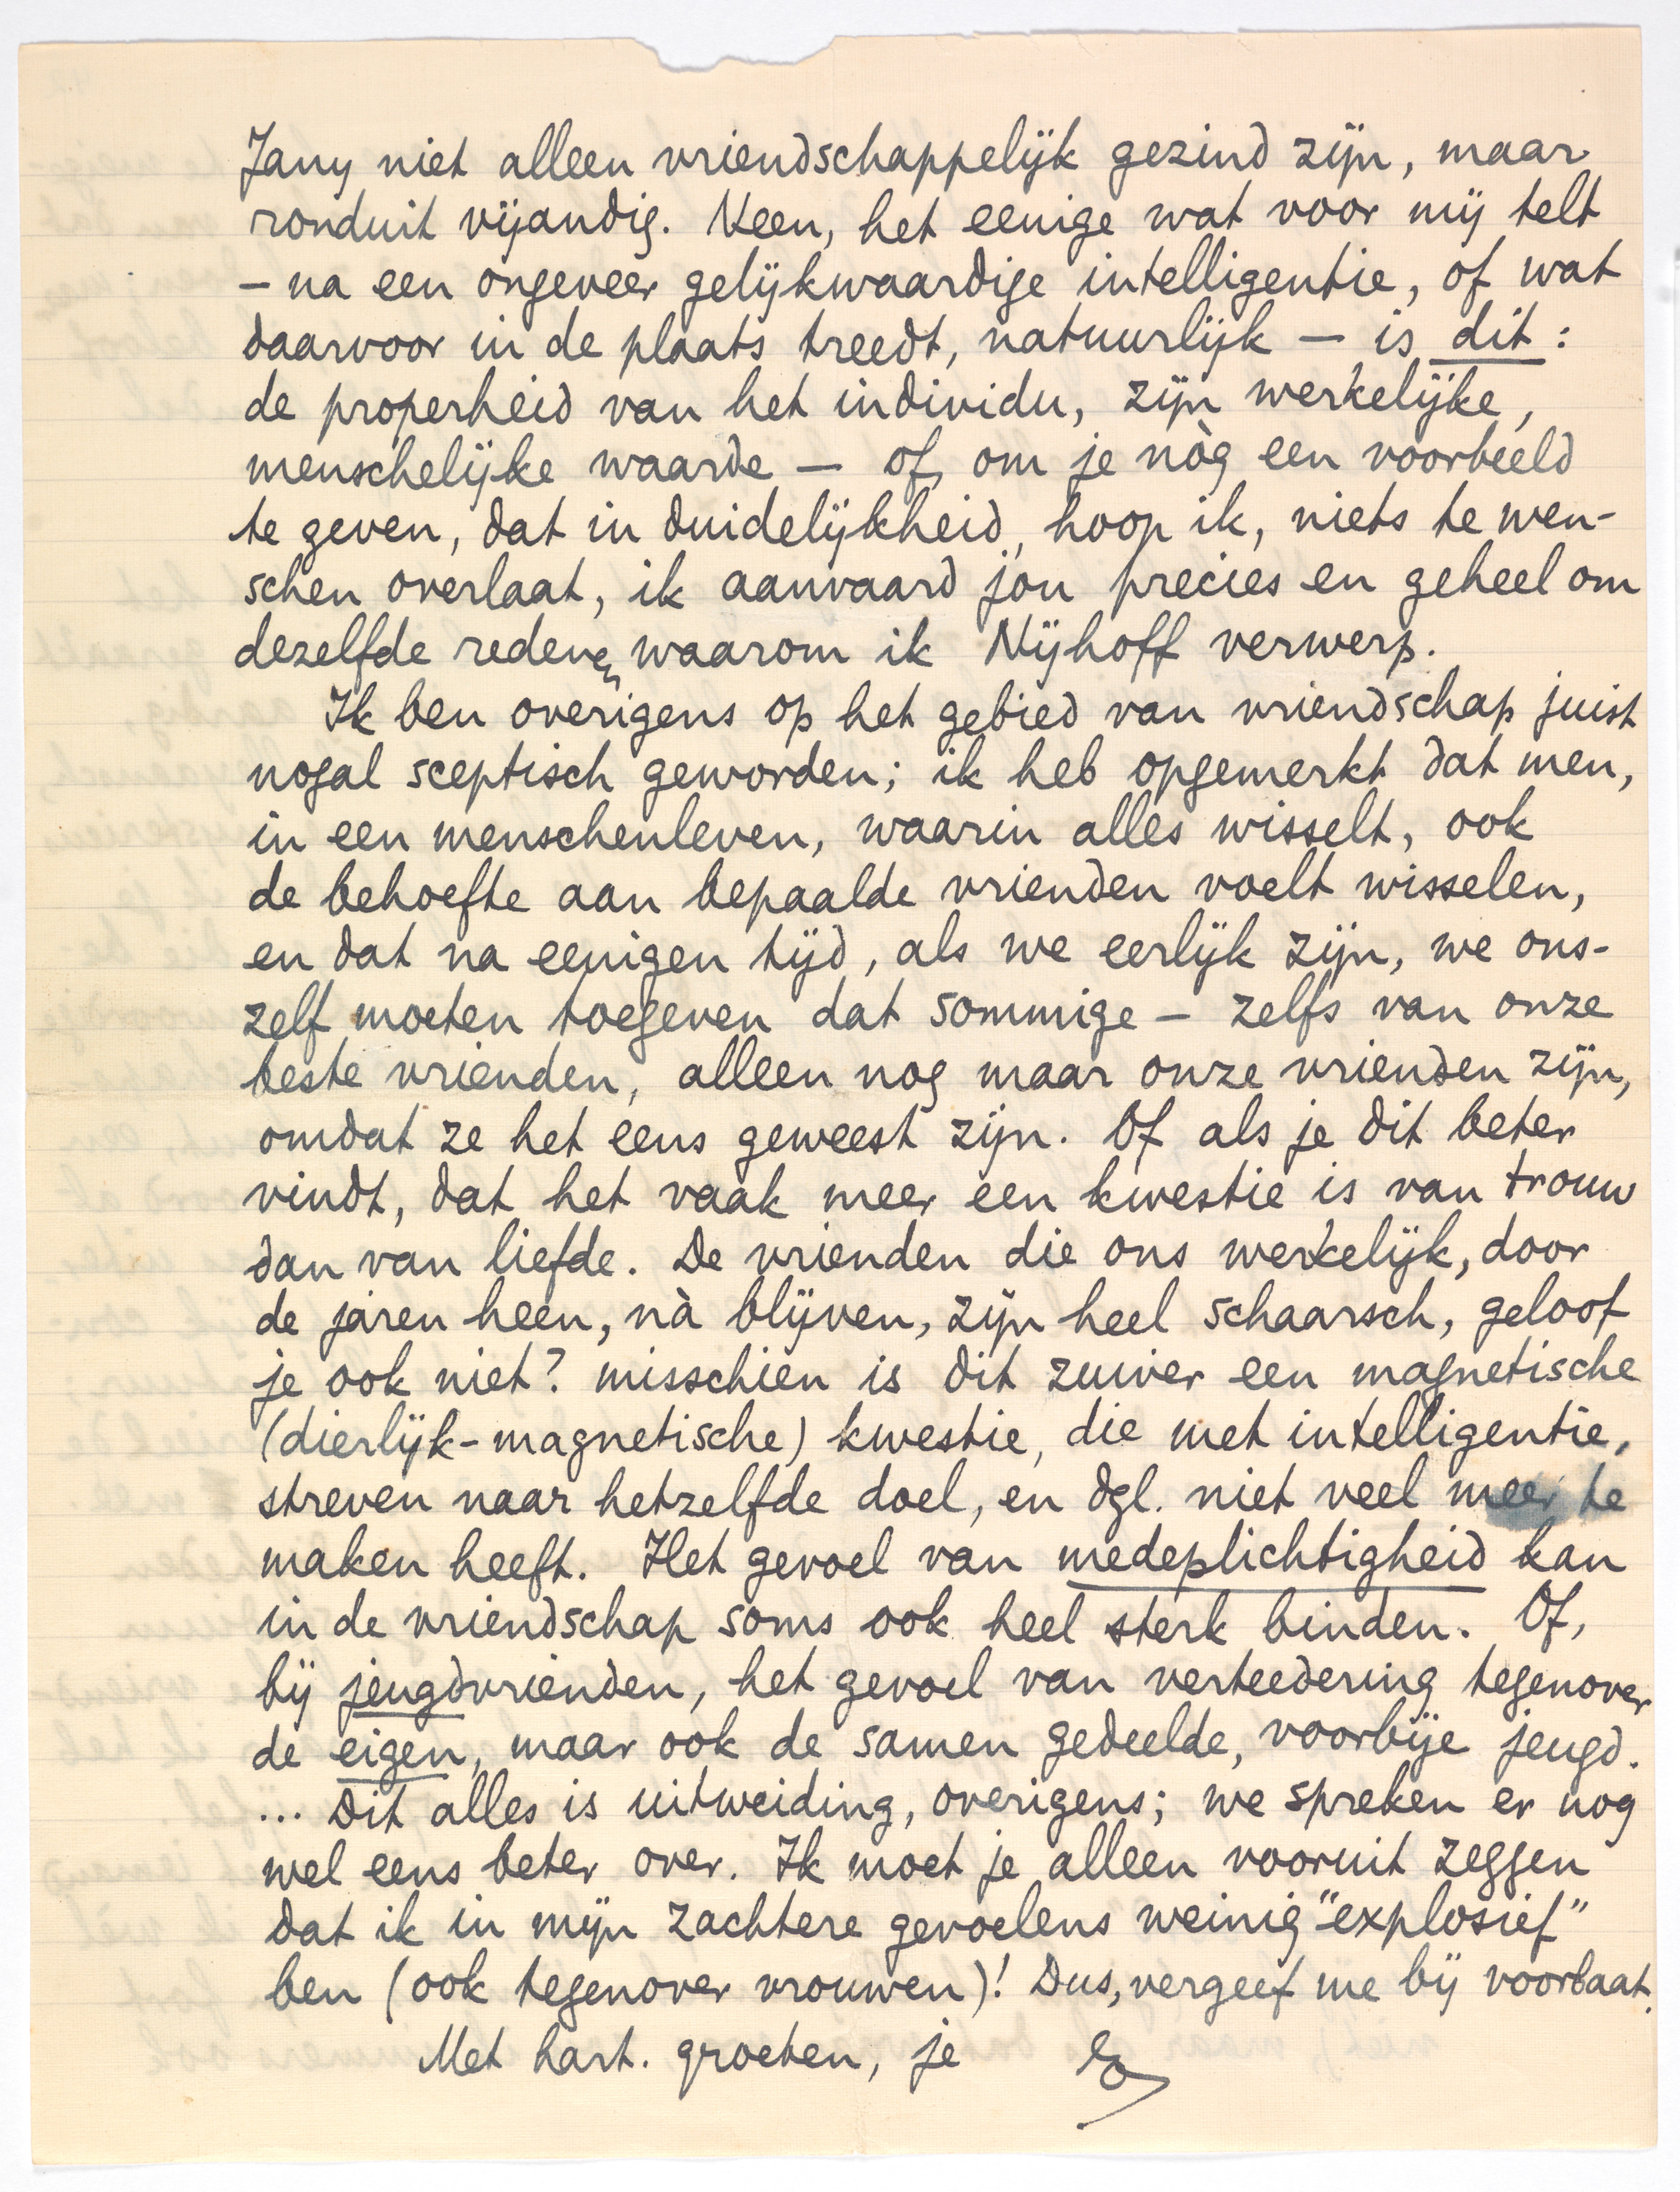 Jany niet alleen vriendschappelijk gezind zijn, maar
ronduit vijandig. Neen, het eenige wat voor mij telt
– na een ongeveer gelijkwaardige intelligentie, of wat
daarvoor in de plaats treedt, natuurlijk – is dit:
de properheid van het individu, zijn werkelijke,
menschelijke waarde – of, om je nòg een voorbeeld
te geven, dat in duidelijkheid, hoop ik, niets te wen-
schen overlaat, ik aanvaard jou precies en geheel om
dezelfde redenen waarom ik Nijhoff verwerp.
Ik ben overigens op het gebied van vriendschap juist
nogal sceptisch geworden; ik heb opgemerkt dat men,
in een menschenleven, waarin alles wisselt, ook
de behoefte aan bepaalde vrienden voelt wisselen,
en dat na eenigen tijd, als we eerlijk zijn, we ons-
zelf moeten toegeven dat sommige – zelfs van onze
beste vrienden, alleen nog maar onze vrienden zijn,
omdat ze het eens geweest zijn. Of als je dit beter
vindt, dat het vaak meer een kwestie is van trouw
dan van liefde. De vrienden die ons werkelijk, door
de jaren heen, nà blijven, zijn heel schaarsch, geloof
je ook niet? misschien is dit zuiver een magnetische
(dierlijk-magnetische) kwestie, die met intelligentie,
streven naar hetzelfde doel, en dgl. niet veel meer te
maken heeft. Het gevoel van medeplichtigheid kan
in de vriendschap soms ook heel sterk binden. Of,
bij jeugdvrienden, het gevoel van verteedering tegenover
de eigen, maar ook de samen gedeelde, voorbije jeugd.
... Dit alles is uitweiding, overigens; we spreken er nog
wel eens beter over. Ik moet je alleen vooruit zeggen
dat ik in mijn zachtere gevoelens weinig "explosief"
ben (ook tegenover vrouwen)! Dus, vergeef me bij voorbaat.
Met hart. groeten, je E